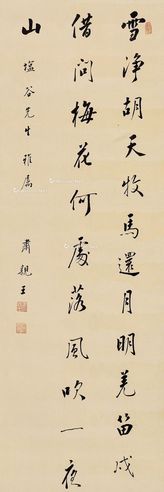 雪淨胡天牧馬還月明羌笛戍
借問梅花何處落風吹一夜
山
塩谷先生雅屬
肅親王